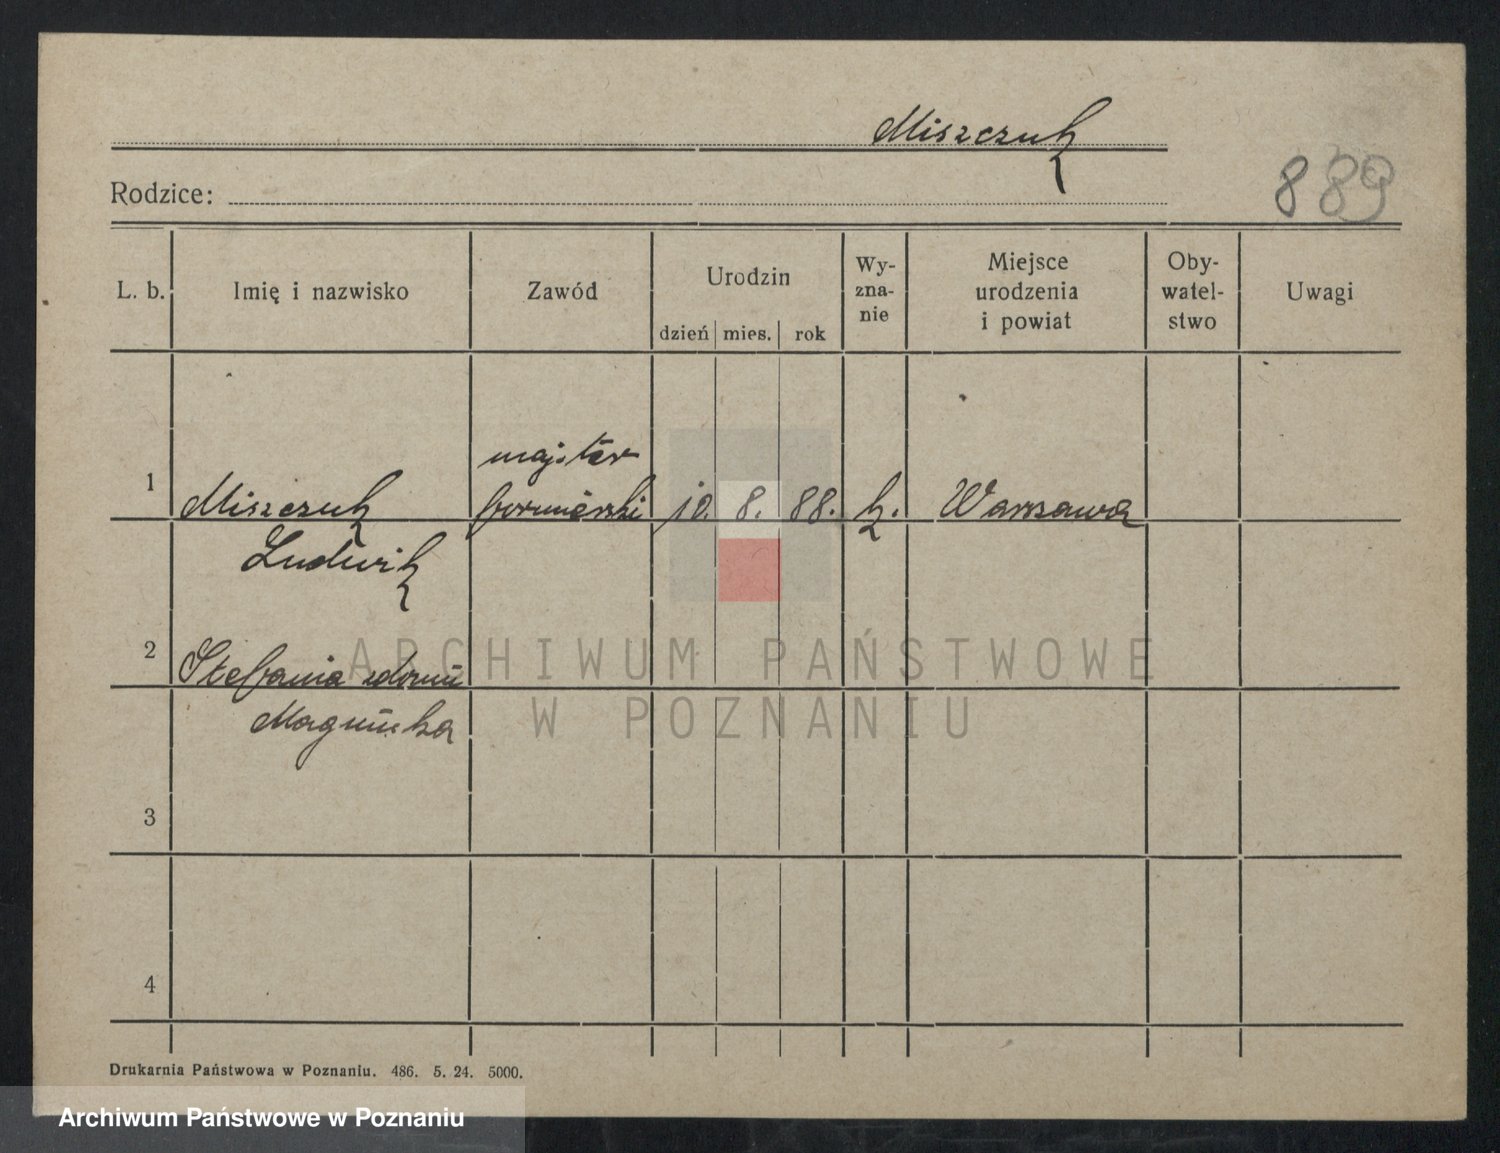 Miszczuk
889
Rodzice:
L. b.
Imię i nazwisko
Zawód
Urodzin
dzień mies. rok
Wy-
zna-
nie
Miejsce
urodzenia
i powiat
Oby-
watel-
stwo
Uwagi
1
Miszczuk
Ludwik
majster
formierski
10. 8. 88.
k.
Warszawa
2
Stefania zdomu
3
4
Drukarnia Państwowa w Poznaniu. 486. 5. 24. 5000.
ARCHIWUM PAŃSTWOWE
W POZNANIU
Archiwum Państwowe w Poznaniu